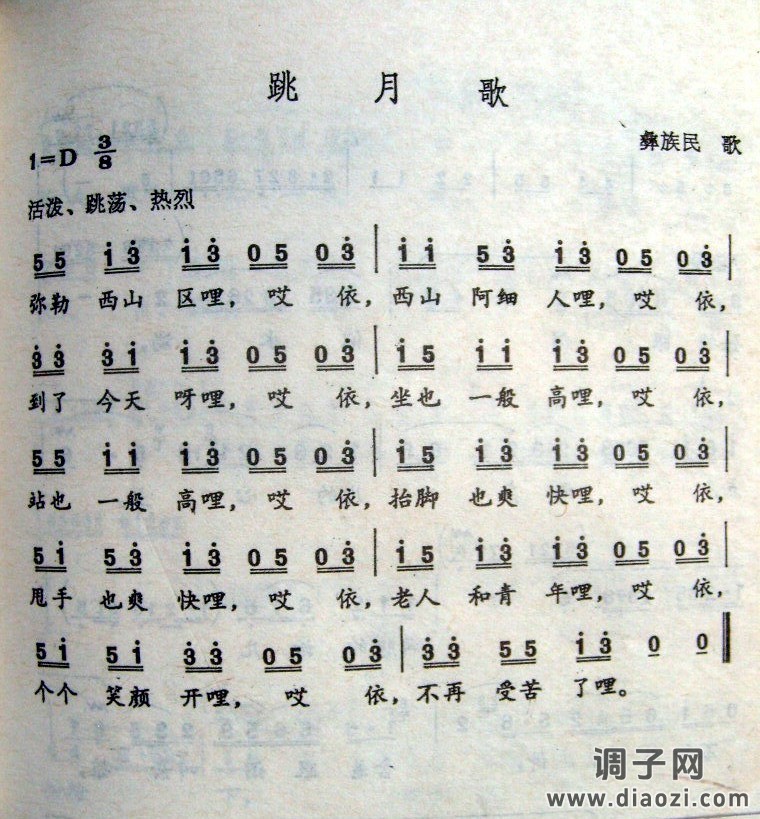 跳月歌
1=D 3/8
彝族民 歌
活泼、跳荡、热烈
55 i̇3̇ i̇3̇ 05 03̇ | i̇i̇ 53̇ i̇3̇ 05 03̇ |
弥勒 西山 区哩, 哎 依, 西山 阿细 人哩, 哎 依,
3̇3̇ 3̇i̇ i̇3̇ 05 03̇ | i̇5 i̇i̇ i̇3̇ 05 03̇ |
到了 今天 呀哩, 哎 依, 坐也 一般 高哩, 哎 依,
55 i̇i̇ i̇3̇ 05 03̇ | i̇5 i̇3̇ i̇3̇ 05 03̇ |
站也 一般 高哩, 哎 依, 抬脚 也爽 快哩, 哎 依,
5i̇ 53̇ i̇3̇ 05 03̇ | i̇5 i̇3̇ i̇3̇ 05 03̇ |
甩手 也爽 快哩, 哎 依, 老人 和青 年哩, 哎 依,
5i̇ 5i̇ 3̇3̇ 05 03̇ | 3̇3̇ 55 i̇3̇ 0 0 ‖
个个 笑颜 开哩, 哎 依, 不再 受苦 了哩。
调子网
www.diaozi.com